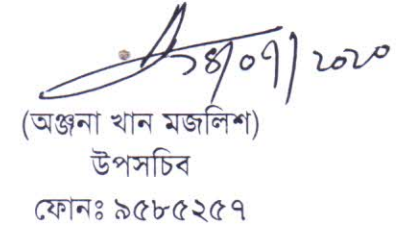 ২৪/০৭/২০২০
(অঞ্জনা খান মজলিশ)
উপসচিব
ফোনঃ ৯৫৮৫২৫৭